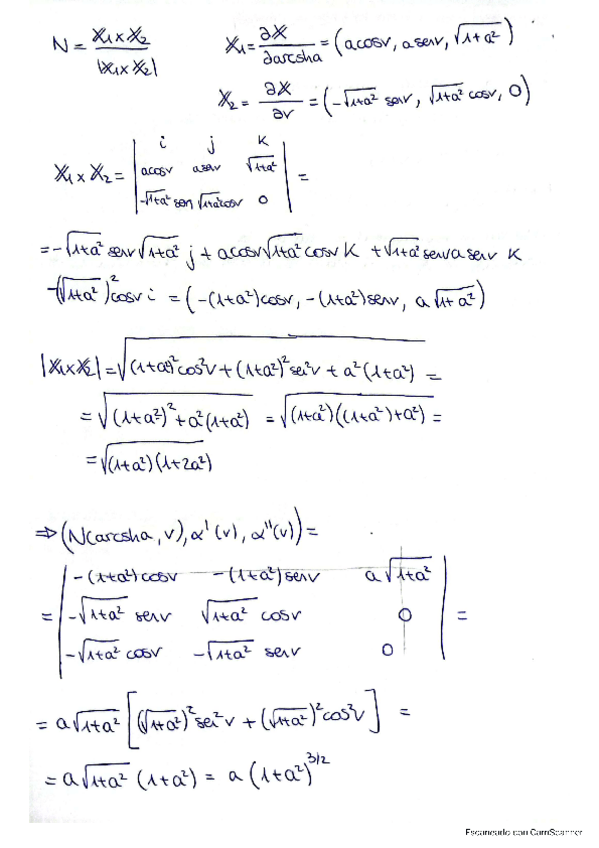 N = X₁ x X₂ / |X₁ x X₂|    X₁ = ∂X/∂arcsha = (a cosv, a senv, √1+a²)
X₂ = ∂X/∂v = (-√1+a² senv, √1+a² cosv, 0)
i j K
X₁ x X₂ = | acosv asenv √1+a² | =
-√1+a² sen √1+a² cosv 0
= -√1+a² senv √1+a² j + a cosv √1+a² cosv K + √1+a² senv a senv K
-(√1+a²)² cosv i = (-(1+a²)cosv, -(1+a²)senv, a √1+a²)
|X₁ x X₂| = √(1+a²)² cos²v + (1+a²)² sen²v + a²(1+a²) =
= √(1+a²)² + a²(1+a²) = √(1+a²)((1+a²)+a²) =
= √(1+a²)(1+2a²)
⇒ (N(arcsha, v), α'(v), α''(v)) =
-(1+a²)cosv -(1+a²)senv a √1+a²
= | -√1+a² senv √1+a² cosv 0 | =
-√1+a² cosv -√1+a² senv 0
= a √1+a² [(√1+a²)² sen²v + (√1+a²)² cos²v] =
= a √1+a² (1+a²) = a (1+a²)^3/2
Escaneado con CamScanner